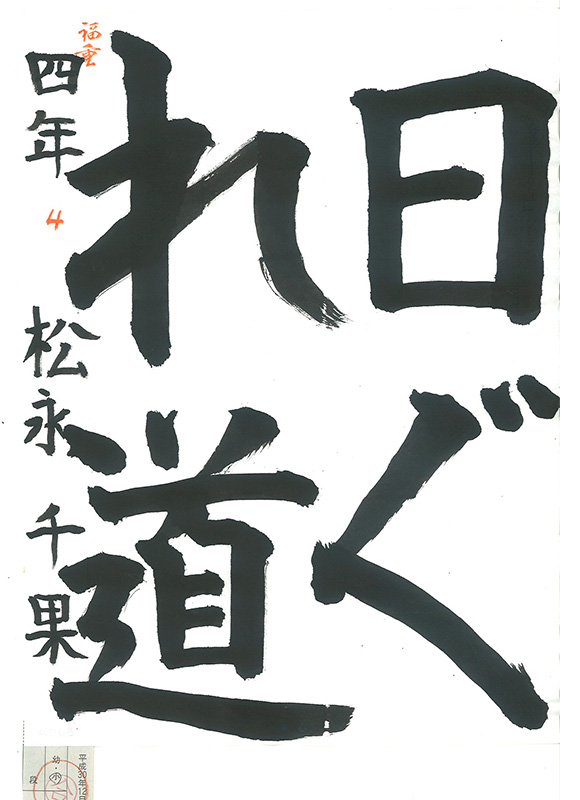 日ぐ
れ道
福重
四年 4 松永千果
平成30年12
幼・小
段